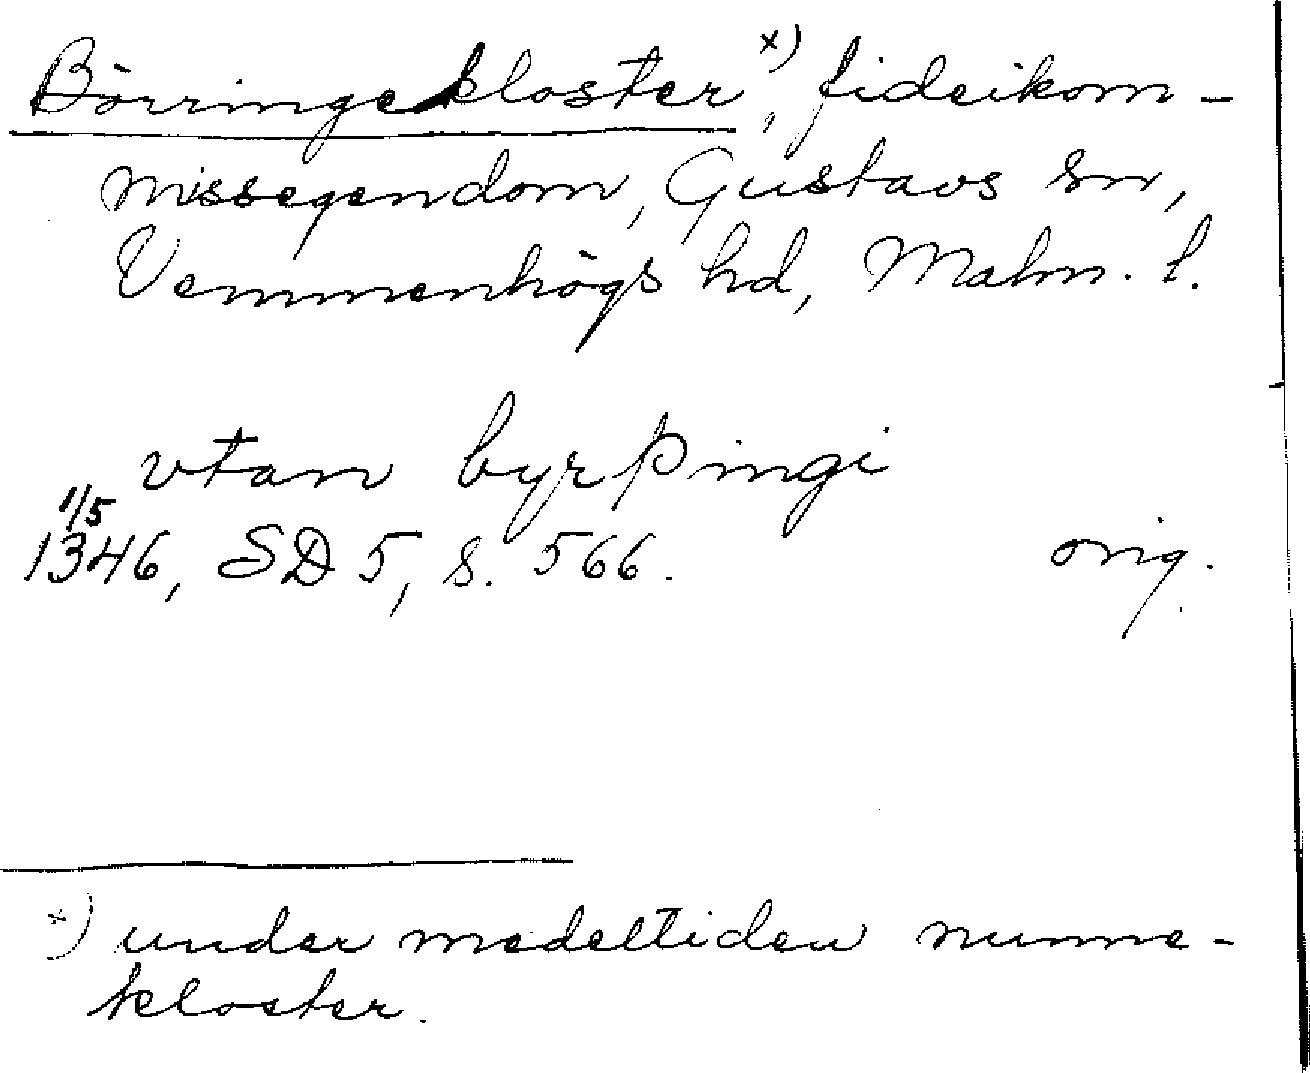 Börringekloster x), fideikom-
missegendom, Gustavs sn,
Vemmenhögs hd, Malm. l.
vtan byrþingi
1/5
1346, SD 5, s. 566. orig.
x) under medeltiden nunne-
kloster.